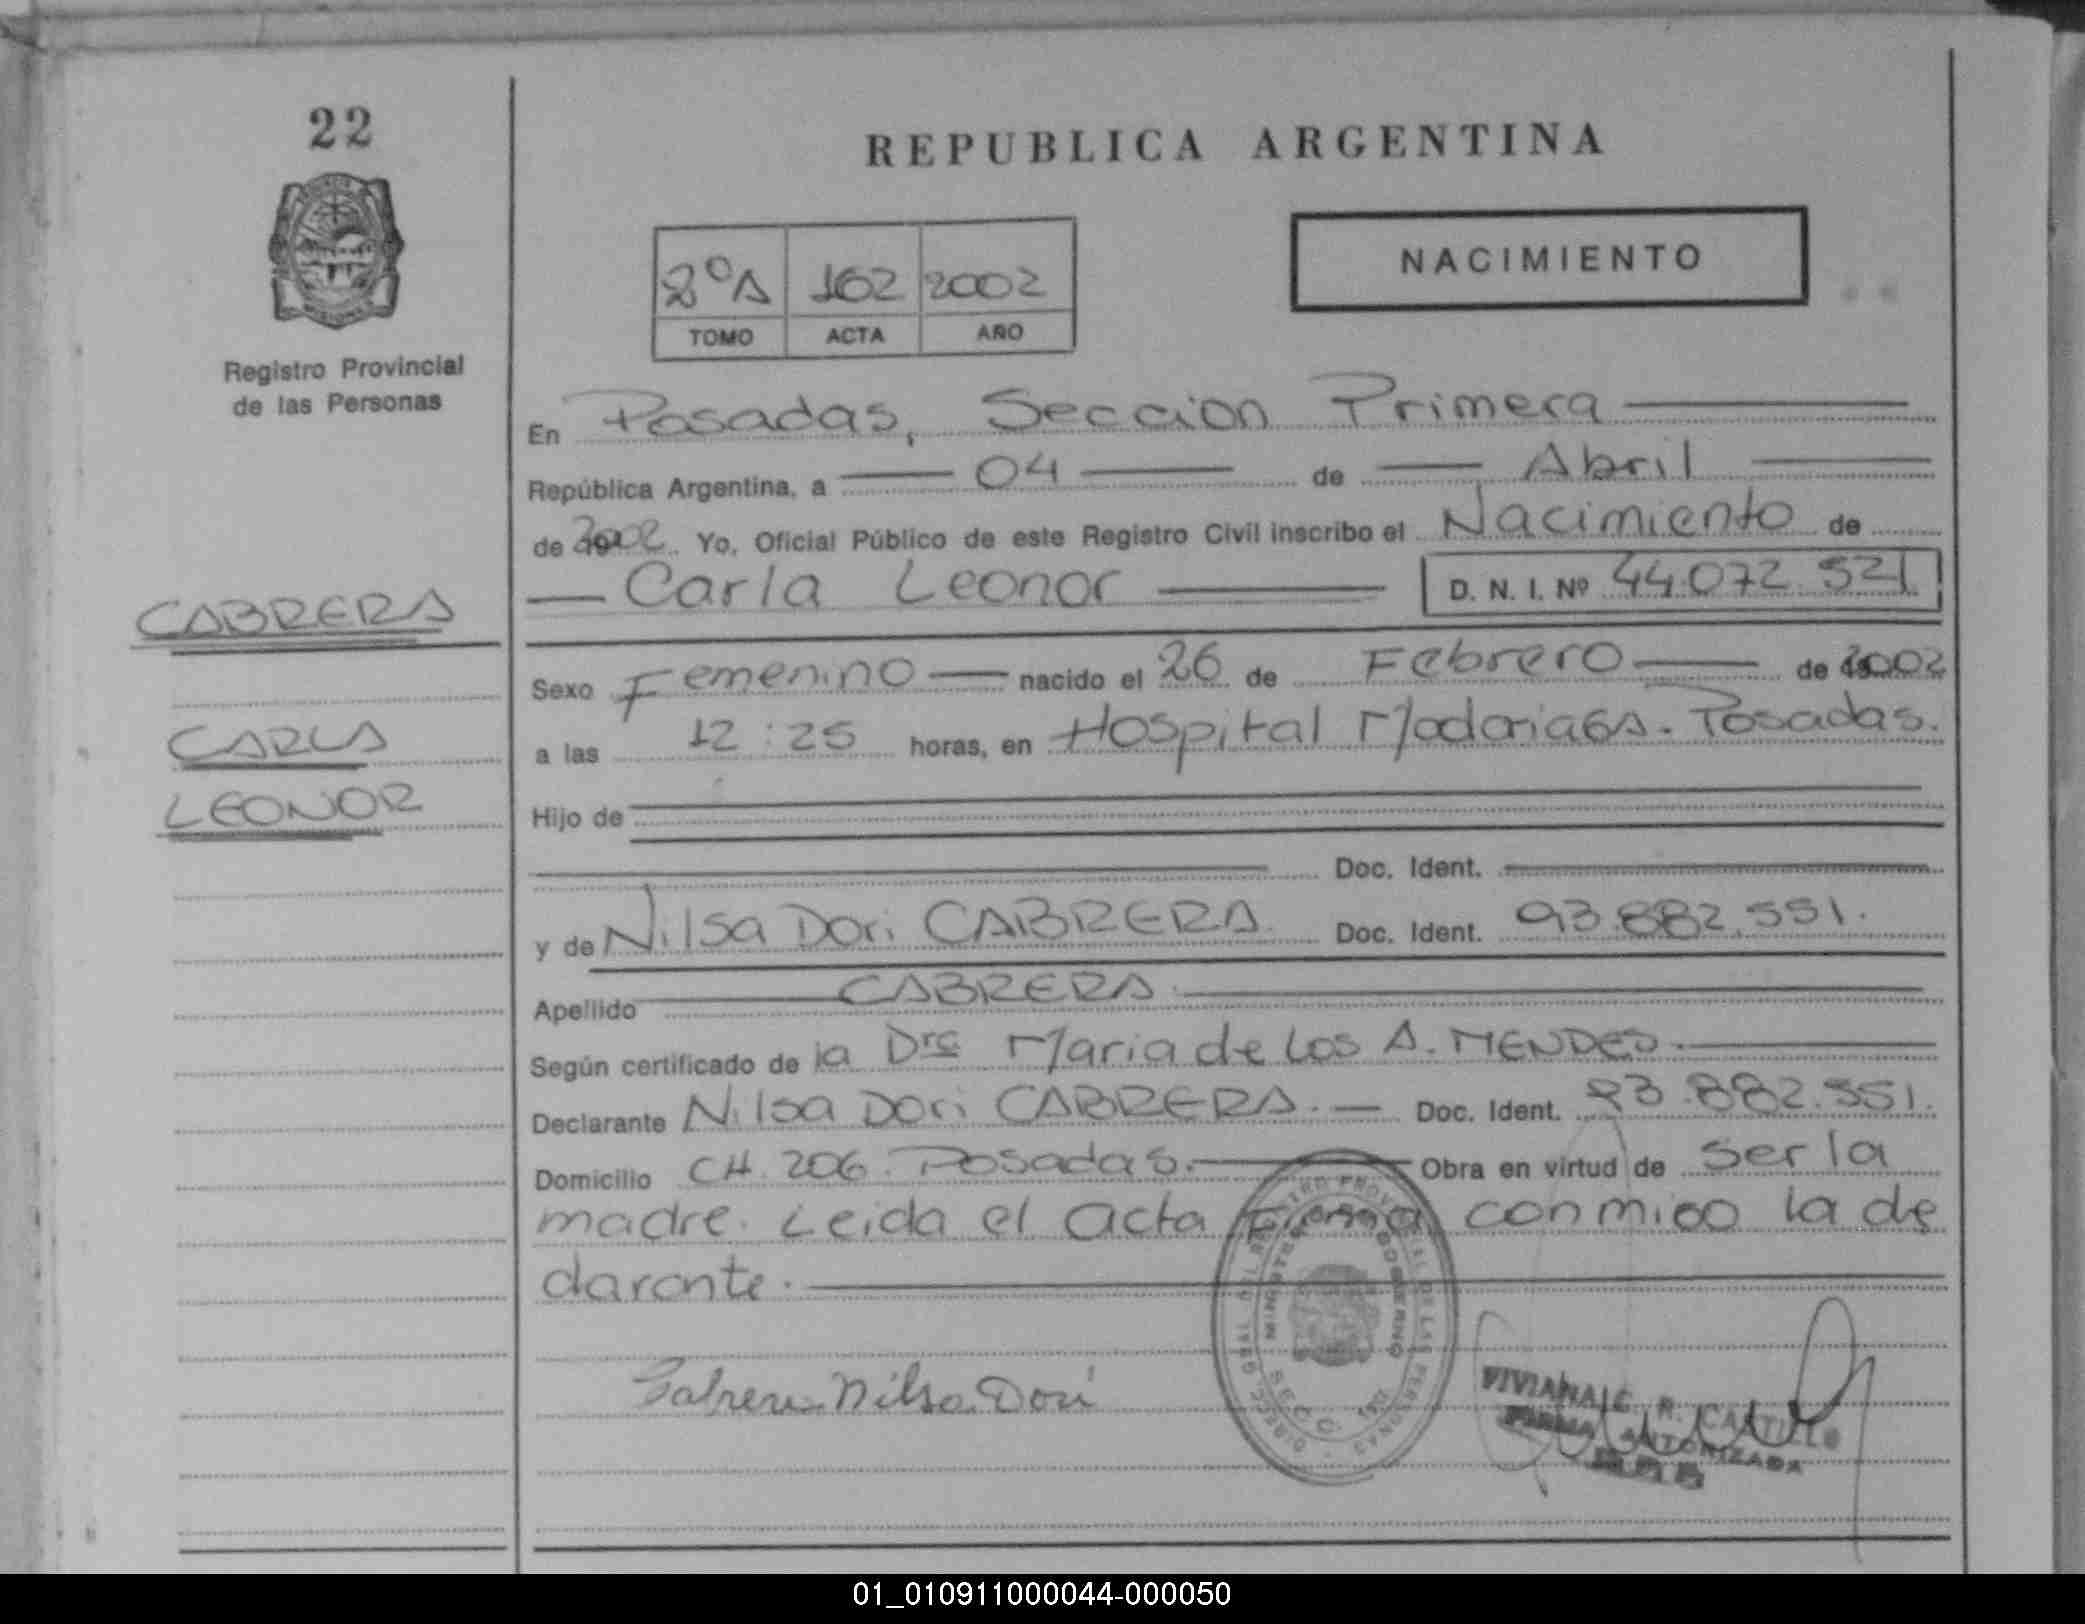 22
REPUBLICA ARGENTINA
NACIMIENTO
2º A 162 2002
TOMO ACTA AÑO
Registro Provincial
de las Personas
En Posadas, Seccion Primera
República Argentina, a 04 de Abril
de 2002 Yo, Oficial Público de este Registro Civil inscribo el Nacimiento de
Carla Leonor D. N. I. Nº 44.072.521
CABRERA
CARLA
LEONOR
Sexo Femenino nacido el 26 de Febrero de 2002
a las 12:25 horas, en Hospital Madariaga. Posadas.
Hijo de
Doc. Ident.
y de Nilsa Dori CABRERA Doc. Ident. 93.882.551.
Apellido CABRERA
Según certificado de la Dra Maria de Los A. MENDES.
Declarante Nilsa Dori CABRERA. Doc. Ident. 93.882.551.
Domicilio CH. 206. Posadas. Obra en virtud de ser la
madre. Leida el acta Firma conmigo la de
clarante.
Cabrera Nilsa Dori
MINISTERIO DE GOBIERNO
SECC. 1ra
R. CASTILLO
FIRMA AUTORIZADA
01_010911000044-000050